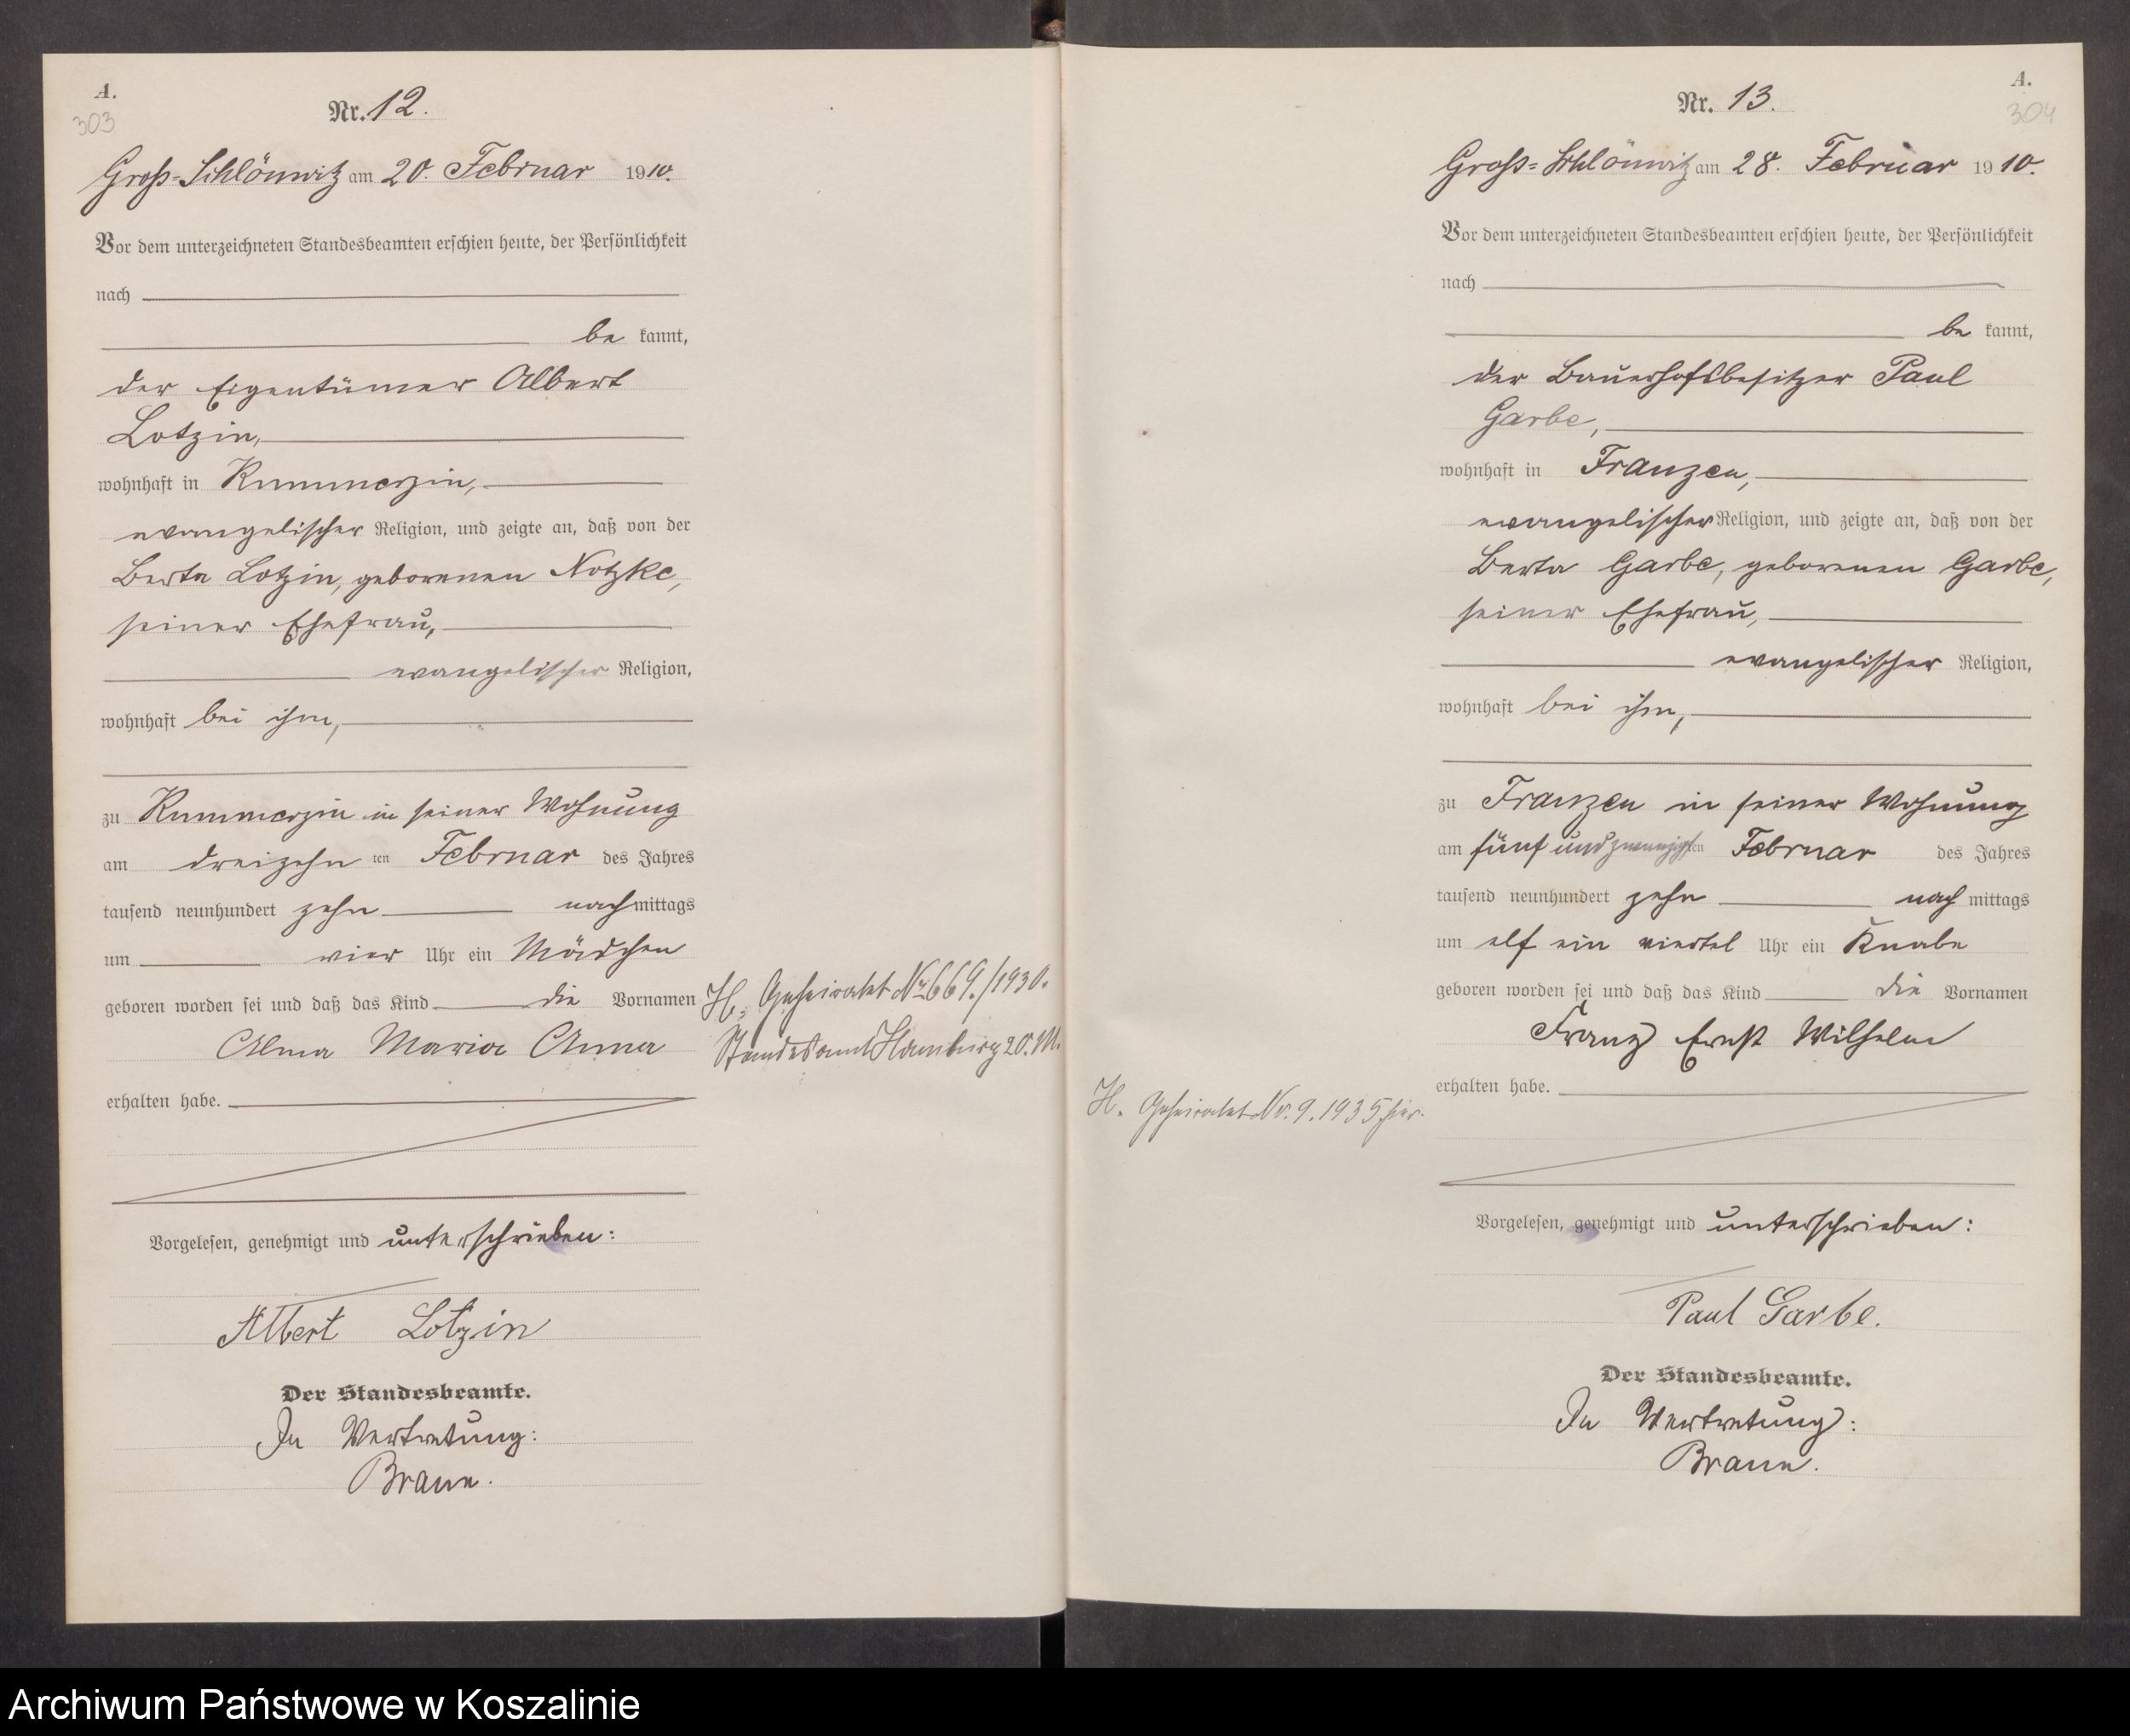 A.
303
Nr. 12.
Groß-Schlönwitz am 20. Februar 1910.
Vor dem unterzeichneten Standesbeamten erschien heute, der Persönlichkeit
nach
be kannt,
der Eigentümer Albert
Lotzin,
wohnhaft in Rummerzin,
evangelischer Religion, und zeigte an, daß von der
Berta Lotzin, geborenen Notzke,
seiner Ehefrau,
evangelischer Religion,
wohnhaft bei ihm,
zu Rummerzin in seiner Wohnung
am dreizehn ten Februar des Jahres
tausend neunhundert zehn nachmittags
um vier Uhr ein Mädchen
geboren worden sei und daß das Kind die Vornamen
Alma Maria Anna
erhalten habe.
Vorgelesen, genehmigt und unterschrieben:
Albert Lotzin
Der Standesbeamte.
In Vertretung:
Braun.
H. Geheiratet Nr. 669./1930.
Standesamt Hamburg 20.
A.
304
Nr. 13.
Groß-Schlönwitz am 28. Februar 1910.
Vor dem unterzeichneten Standesbeamten erschien heute, der Persönlichkeit
nach
be kannt,
der Bauerhofsbesitzer Paul
Garbe,
wohnhaft in Franzen,
evangelischer Religion, und zeigte an, daß von der
Berta Garbe, geborenen Garbe,
seiner Ehefrau,
evangelischer Religion,
wohnhaft bei ihm,
zu Franzen in seiner Wohnung
am fünfundzwanzigsten Februar des Jahres
tausend neunhundert zehn nach mittags
um elf ein viertel Uhr ein Knabe
geboren worden sei und daß das Kind die Vornamen
Franz Ernst Wilhelm
erhalten habe.
H. Geheiratet Nr. 9. 1935 hier.
Vorgelesen, genehmigt und unterschrieben:
Paul Garbe.
Der Standesbeamte.
In Vertretung:
Braun.
Archiwum Państwowe w Koszalinie